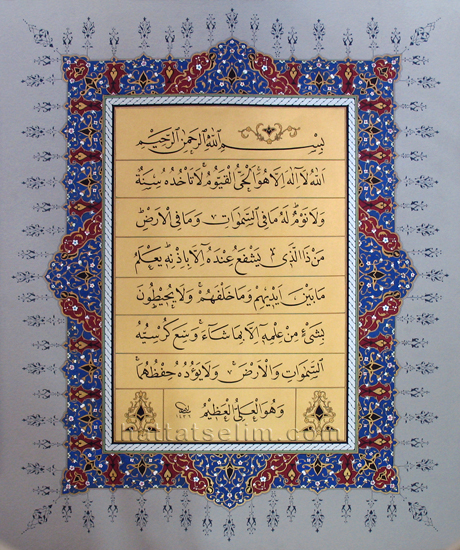 بِسْمِ اللّٰهِ الرَّحْمٰنِ الرَّحِيمِ
اَللّٰهُ لَا اِلٰهَ اِلَّا هُوَ الْحَيُّ الْقَيُّومُ لَا تَأْخُذُهُ سِنَةٌ
وَلَا نَوْمٌ لَهُ مَا فِي السَّمٰوَاتِ وَمَا فِي الْاَرْضِ
مَنْ ذَا الَّذِي يَشْفَعُ عِنْدَهُ اِلَّا بِاِذْنِهِ يَعْلَمُ
مَا بَيْنَ اَيْدِيهِمْ وَمَا خَلْفَهُمْ وَلَا يُحِيطُونَ
بِشَيْءٍ مِنْ عِلْمِهِ اِلَّا بِمَا شَاءَ وَسِعَ كُرْسِيُّهُ
السَّمٰوَاتِ وَالْاَرْضَ وَلَا يَؤُدُهُ حِفْظُهُمَا
وَهُوَ الْعَلِيُّ الْعَظِيمُ
hattatselim.com